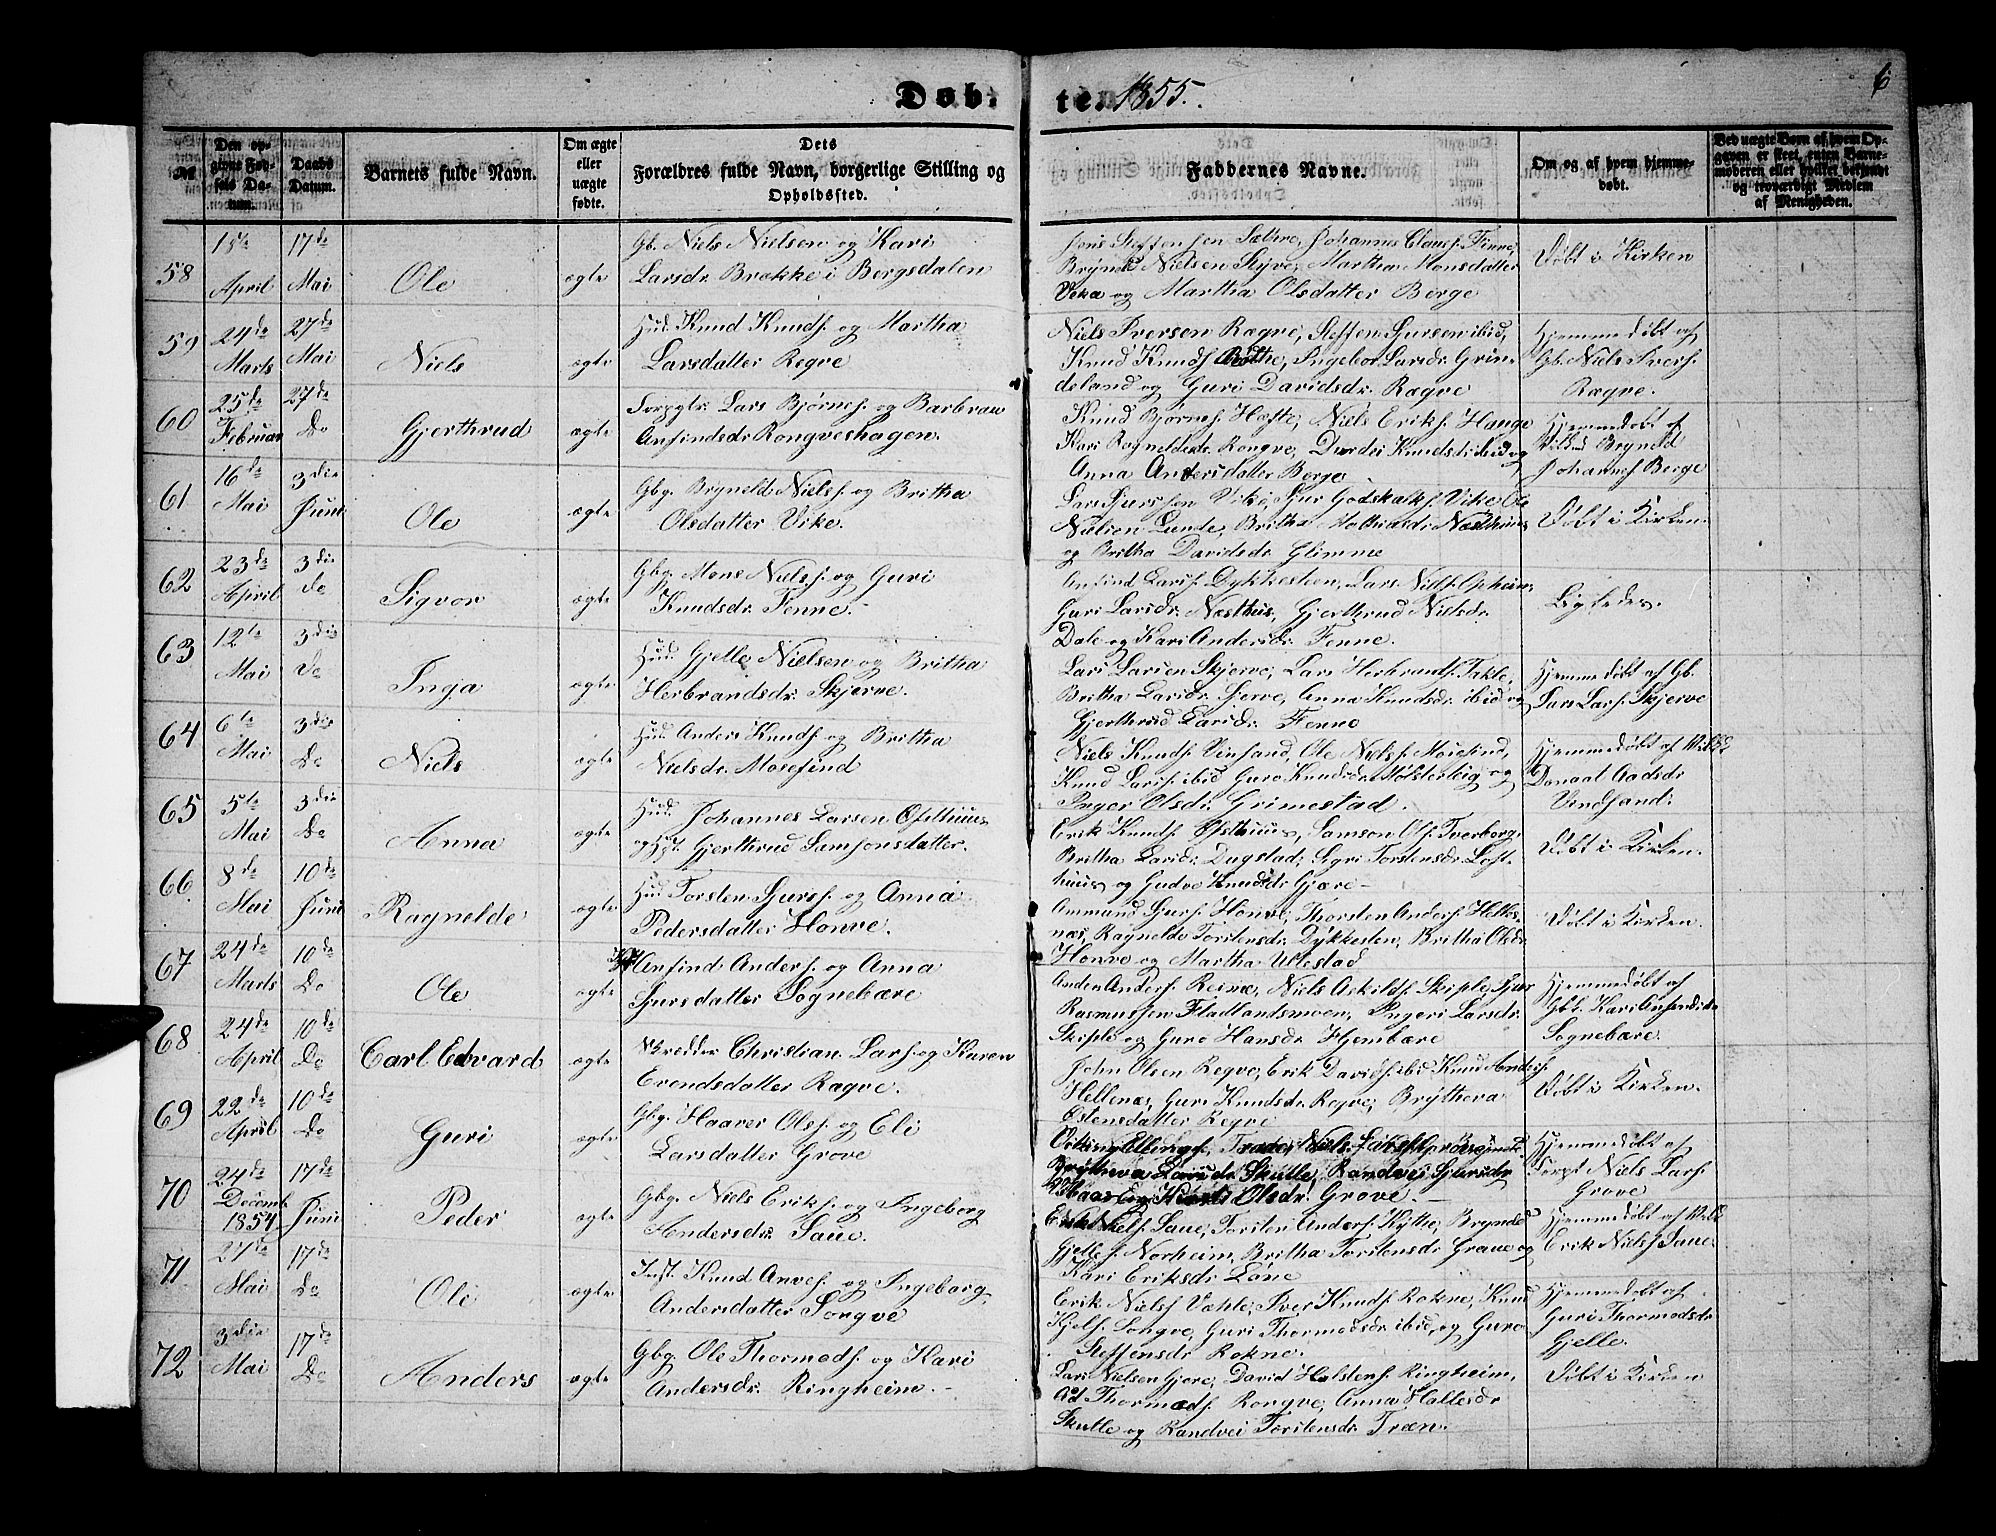 Døb-
te. 1855.
6
№
Den op-
givne Fød-
sels Da-
tum.
Daabs
Datum.
Barnets fulde Navn.
Om ægte
eller
uægte
fødte.
Dets
Forældres fulde Navn, borgerlige Stilling og
Opholdssted.
Faddernes Navne.
Om og af hvem hjemme-
døbt.
Ved uægte Børn af hvem Op-
gaven er skeet, enten Barne-
moderen eller hvilket bekjendt
og troværdigt Medlem
af Menigheden.
58
April
17de
Mai
Ole
ægte
Gb. Niels Nielsen og Kari
Larsdr. Brække i Bergsdalen
Johannes Clausf. Finne,
Nielsen Skjve, Martha Monsdatter
og Martha Olsdatter Berge
Døbt i Kirken
59
24de
Marts
27de
Mai
Niels
ægte
Hud. Knud Knudf. og Martha
Larsdatter Regve
Niels Iversen Rægve, Steffen Sjursen ibid,
Knud Knudf. Ingebor Larsdr. Grin-
deland og Guri Davidsdr. Rægve
Hjemmedøbt af
Gb. Niels Iverf.
Rægve.
60
25de
Februar
27de
Do
Gjerthrud
ægte
Lars Bjørnef. og Barbrau
Anfindsdr. Rongveshagen.
Knud Bjørnef. Hæfte, Niels Erikf. Hauge
Kari Rongve, Durdei Knudsdr. ibid og
Anna Andersdatter Berge
Hjemmedøbt af
Bryneld
Johannesf. Berge
61
16de
Mai
3die
Juni
Ole
ægte
Gbg. Bryneld Nielsf. og Britha
Olsdatter Vike.
Lars Sjurssen Vike, Sjur Godskalkf. Vike, Ole
Nielsen Lunde, Britha Næsthuus
og Britha Davidsdr. Glimme
Døbt i Kirken.
62
23de
April
3die
do
Sigvor
ægte
Gbg. Mons Nielsf. og Guri
Knudsdr. Fenne.
Anfind Larsf. Dykkesten, Lars Nielsf. Opheim,
Guri Larsdr. Næsthus, Gjerthrud Nielsdr.
Dale og Kari Andersdr. Fenne.
Ligeledes.
63
12te
Mai
3die
do
Inga
ægte
Hud. Gjelle Nielsen og Britha
Herbrandsdr. Skjerve.
Lars Larsen Skjerve, Lars Herbrandf. Takle,
Britha Larsdr. Anna Knudsdr. ibid og
Gjerthrud Larsdr. Fenne
Hjemmedøbt af Gb.
Lars Larsf. Skjerve
64
6te
Mai
3die
Do
Niels
ægte
Hud. Anders Knudf. og Britha
Nielsdr. Mosefind
Niels Knudf. Vinsand, Ole Nielsf. Mosefind,
Knud Larsf. ibid Guro Knudsdr. og
Inger Olsdr. Grimestad.
Hjemmedøbt af
Aadsdr.
Vindsand.
65
5te
Mai
3die
Do
Anna
ægte
Hud. Johannes Larsen Østhuus
og Gjerthrud Samsonsdatter.
Erik Knudf. Østhuus, Samson Olsf. Tverberg,
Britha Larsdr. Dugstad, Sigri Torstensdr. Loft-
huus og Gudve Knudsdr. Gjære
Døbt i Kirken.
66
8de
Mai
10de
Juni
Ragnelde
ægte
Hud. Torsten Sjursf. og Anna
Pedersdatter Honve.
Ammund Sjursf. Honve, Thorsten Andersf. Helles-
næs, Ragnelde Torstensdr. Dykkesten, Britha Olsdr.
Honve og Martha Ullestad
Døbt i Kirken.
67
24de
Marts
10de
Do
Ole
ægte
Anfind Andersf. og Anna
Sjursdatter Sognebære
Anders Andersf. Reime, Niels Askildf. Skiple, Sjur
Rasmussen Fladlandsmoen, Ingeri Larsdr.
Skiple og Guro Hansdr. Hjembære
Hjemmedøbt af
Sognebære.
68
24de
April
10de
Do
Carl Edvard
ægte
Skredder Christian Larsf. og Karen
Evendsdatter Ragve.
John Olsen Regve, Erik Davidsf. ibid. Knud Andersf.
Hellenæs, Guri Knudsdr. Regve, Brytheva
Østensdatter Regve
Døbt i Kirken.
69
22de
April
10de
Do
Guri
ægte
Gbg. Haaver Olsf. og Eli
Larsdatter Grove
Viking Ellingsf. Træde, Niels Larsf.
Brytheva Larsdr. Skulle, Randvei Sjursdr.
Olsdr. Grove
Hjemmedøbt af
Niels Larsf.
Grove
70
24de
Decemb.
1854
17de
Juni
Peder
ægte
Gbg. Niels Eriksf. og Ingeborg
Andersdr. Saue.
Nielsf. Saue, Torsten Andersf. Kythe, Bryneld
Gjellef. Norheim, Britha Torstensdr. Graue og
Kari Eriksdr. Løne
Hjemmedøbt af
Erik Nielsf. Saue.
71
27de
Mai
17de
Do
Oli
ægte
Inst. Knud Anvef. og Ingeborg
Andersdatter Songve
Erik Nielsf. Væhle, Iver Knudf. Rokne, Knud
Kjelsf. Songve, Guri Thormodsdr. ibid, og Guro
Steffensdr. Rokne.
Hjemmedøbt af
Guri Thormodsdr.
Gjelle.
72
3die
Mai
17de
Do
Anders
ægte
Gbg. Ole Thormodsf. og Kari
Andersdr. Ringheim.
Lars Nielsen Gjøre, David Holstensf. Ringheim,
Ad Thormodsf. Rongve, Anna Hallesdr.
Skulle og Randvei Torstensdr. Træn.
Døbt i Kirken